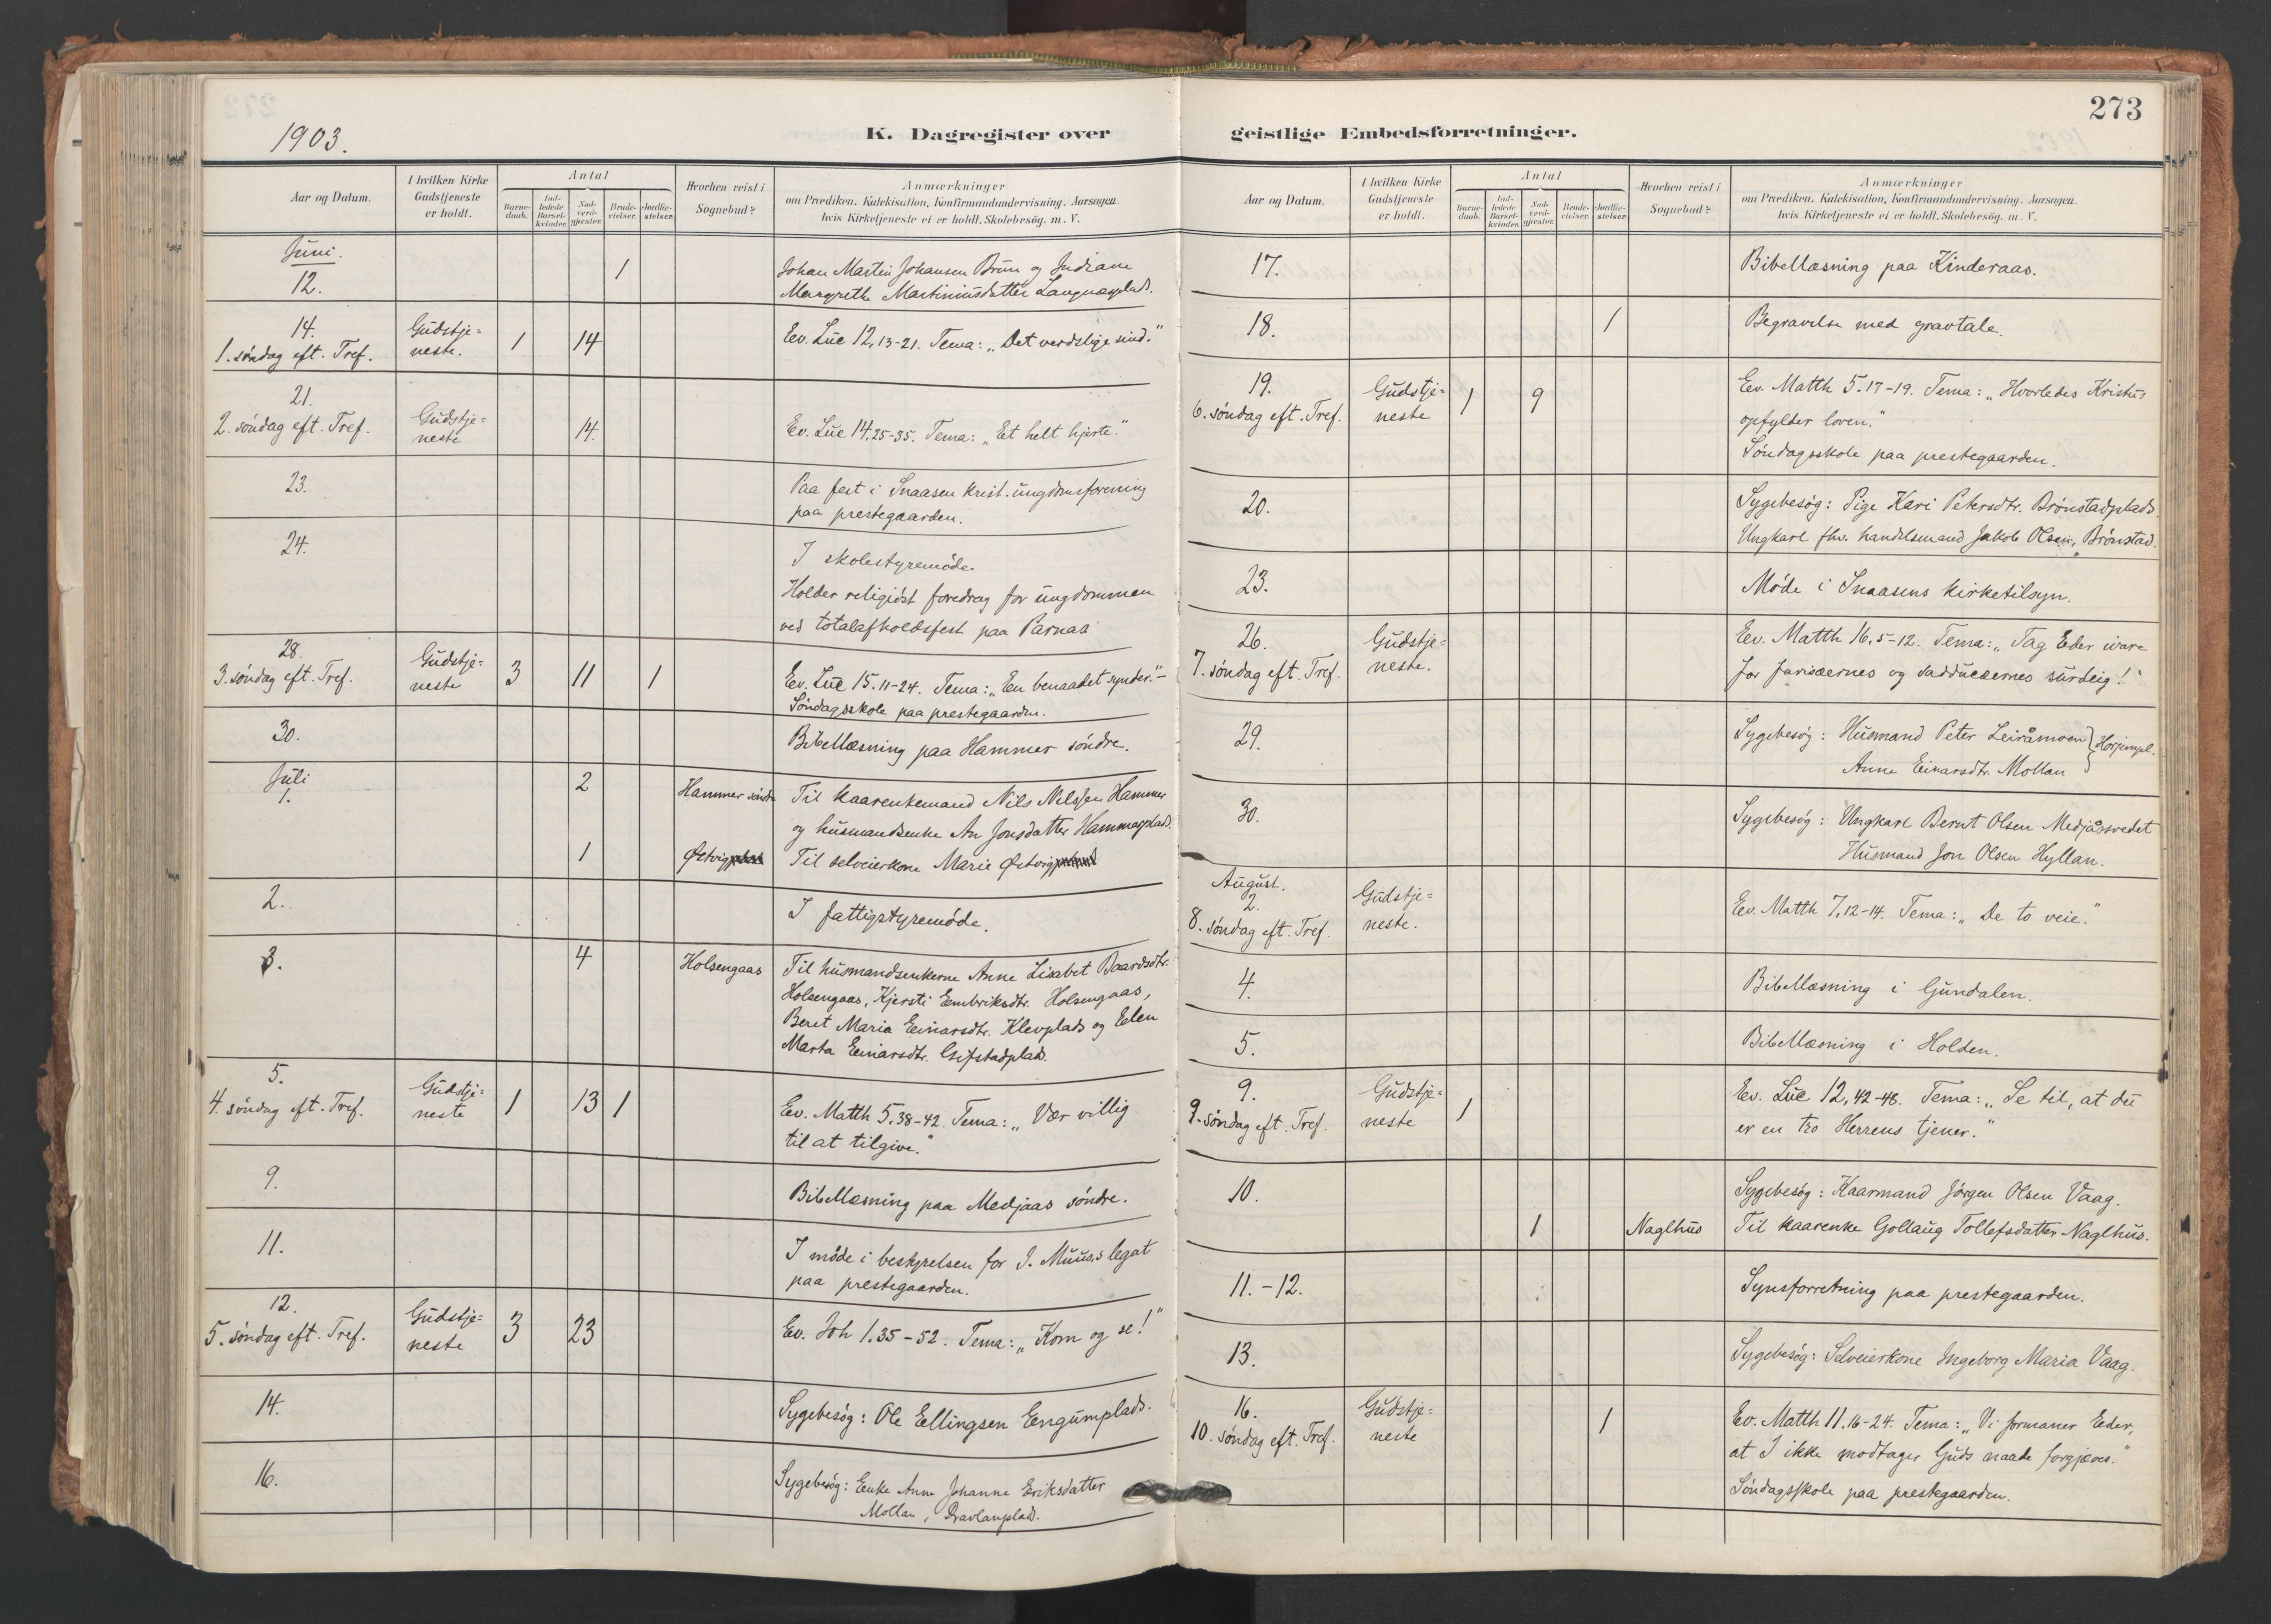 1903.
K. Dagregister over
Aar og Datum.
I hvilken Kirke
Gudstjeneste
er holdt.
Antal
Barne-
daab.
Ind-
ledede
Barsel-
kvinder.
Nad-
verd-
gjester.
Brude-
vielser.
Jordfæ-
stelser.
Hvorhen reist i
Sognebud?
Anmærkninger
om Prædiken. Katekisation, Konfirmandundervisning. Aarsagen.
hvis Kirketjeneste ei er holdt, Skolebesøg. m. V.
Juni.
12. 1 Johan Martin Johansen Brun og Indiane
Margrethe Martiniusdatter
14.
1. søndag eft. Tref. Gudstje=
neste. 1 14 Ev. Luc 12,13-21. Tema: „Det verdslige sind."
21.
2. søndag eft. Tref. Gudstje=
neste 14. Ev. Luc 14.25-35. Tema: „Et helt hjerte."
23. Paa fest i Snaasen krist. ungdomsforening
paa prestegaarden.
24. I skolestyremøde.
Holder religiøst foredrag for ungdommen
ved totalafholdsfest paa Parnas
28.
3. søndag eft. Tref. Gudstje=
neste 3 11 1 Ev. Luc 15.11-24. Tema: „En benaadet synder."-
Søndagsskole paa prestegaarden.
30. Bibellæsning paa Hammer søndre.
Juli
1. 2 Hammer søndre Til kaarenkemand Nils Nilssen Hammer
og husmandsenke An Jonsdatter Hammerplads.
1 Østvig Til selveierkone Marie Østvig
2. I fattigstyremøde.
3. 4 Holsengaas Til husmandsenkerne Anne Lisabet Baardsdtr.
Holsengaas, Kjersti Embriksdtr. Holsengaas,
Beret Maria Einarsdtr. Klevplads og Elen
Marta Einarsdtr. Gifstadplads.
5.
4. søndag eft. Tref. Gudstje=
neste 1 13 1 Ev. Matth 5.38-42. Tema: „Vær villig
til at tilgive."
9. Bibellæsning paa Medjaas søndre.
11. I møde i bestyrelsen for J. Muus's legat
paa prestegaarden.
12.
5. søndag eft. Tref. Gudstje=
neste 3 23 Ev. Joh 1.35-52. Tema: „Kom og se!"
14. Sygebesøg: Ole Ellingsen Engumplads.
16. Sygebesøg: Enke Anne Johanne Eriksdatter
Mollan,
273
geistlige Embedsforretninger.
Aar og Datum.
I hvilken Kirke
Gudstjeneste
er holdt.
Antal
Barne-
daab.
Ind-
ledede
Barsel-
kvinder.
Nad-
verd-
gjester.
Brude-
vielser.
Jordfæ-
stelser.
Hvorhen reist i
Sognebud?
Anmærkninger
om Prædiken. Katekisation, Konfirmandundervisning. Aarsagen.
hvis Kirketjeneste ei er holdt, Skolebesøg. m. V.
17. Bibellæsning paa Kinderaas.
18. 1 Begravelse med gravtale.
19.
6. søndag eft. Tref. Gudstje=
neste 1 9 Ev. Matth 5.17-19. Tema: „Hvorledes Kristus
opfylder loven."
Søndagsskole paa prestegaarden.
20. Sygebesøg: Pige Kari Petersdtr. Brønstadplads.
Ungkarl fhv. handelsmand Jakob Olsen, Brønstad.
23. Møde i Snaasens kirketilsyn.
26.
7. søndag eft. Tref. Gudstje=
neste. Ev. Matth 16.5-12. Tema: „Tag Eder ivare
for farisæernes og sadducæernes surdeig!"
29. Sygebesøg: Husmand Peter Leiråmoen
Anne Einarsdtr. Mollan
30. Sygebesøg: Ungkarl Bernt Olsen Medjåsvedet
Husmand Jon Olsen Hyllan.
August.
2.
8. søndag eft. Tref. Gudstje=
neste. Ev. Matth 7,12-14. Tema: „De to veie."
4. Bibellæsning i Gundalen.
5. Bibellæsning i Holden.
9.
9. søndag eft. Tref. Gudstje=
neste 1 Ev. Luc 12,42-48. Tema: „Se til, at du
er en tro Herrens tjener."
10. Sygebesøg: Kaarmand Jørgen Olsen Vaag.
1 Naglhus Til kaarenke Gollaug Tollefsdatter Naglhus.
11.-12. Synsforretning paa prestegaarden.
13. Sygebesøg: Selveierkone Ingeborg Maria Vaag.
16.
10. søndag eft. Tref. Gudstje=
neste 1 Ev. Matth 11.16-24. Tema: „Vi formaner Eder,
at I ikke modtager Guds naade forgjæves."
Søndagsskole paa prestegaarden.